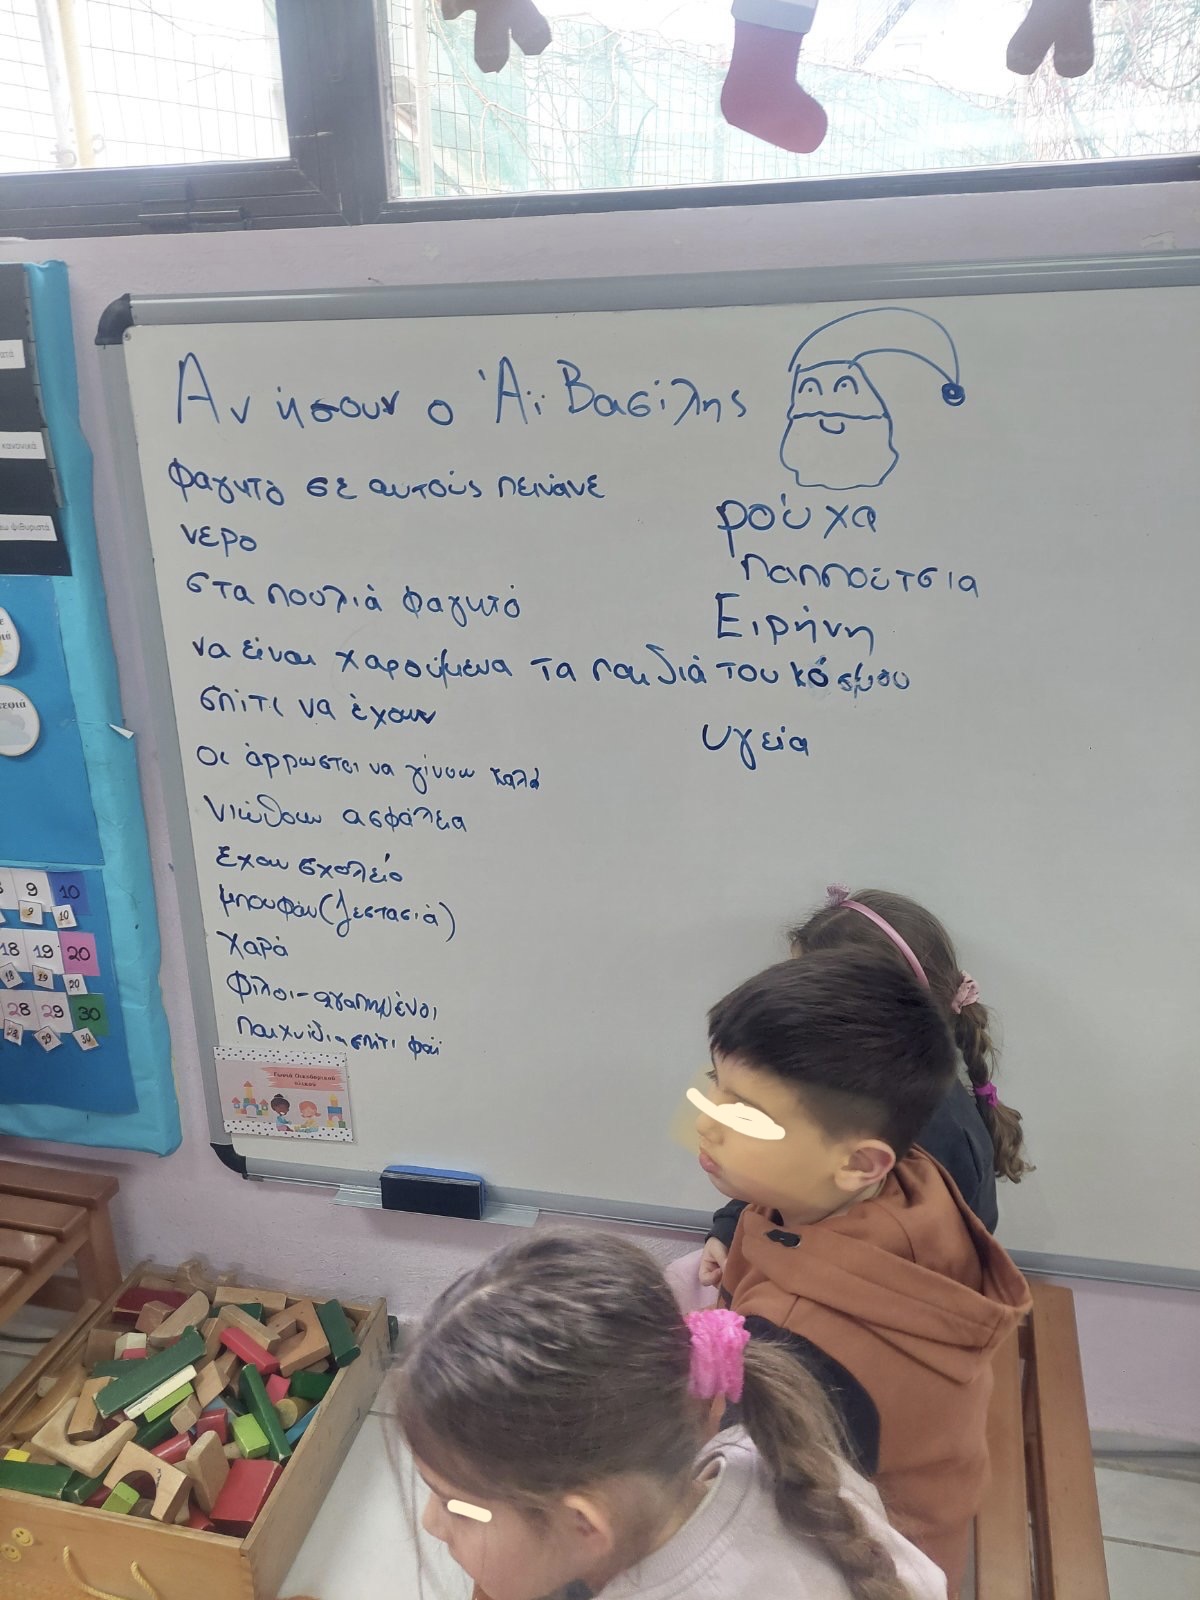 Αν ήσουν ο Άϊ Βασίλης
φαγητό σε αυτούς πεινάνε
νερο
στα πουλιά φαγητό
να είναι χαρούμενα τα παιδιά του κόσμου
σπίτι να έχουν
Οι άρρωστοι να γίνουν καλά
νιώθουν ασφάλεια
Εχουν σχολείο
μπουφάν (ζεστασιά)
χαρά
φίλοι-αγαπημένοι
παιχνίδια σπίτι φαϊ
ρούχα
παππούτσια
Ειρήνη
υγεία
Γωνιά Οικοδομικού
υλικού
κανονικά
ψιθυριστά
9 10
9 10
18 19 20
18 19 20
28 29 30
28 29 30